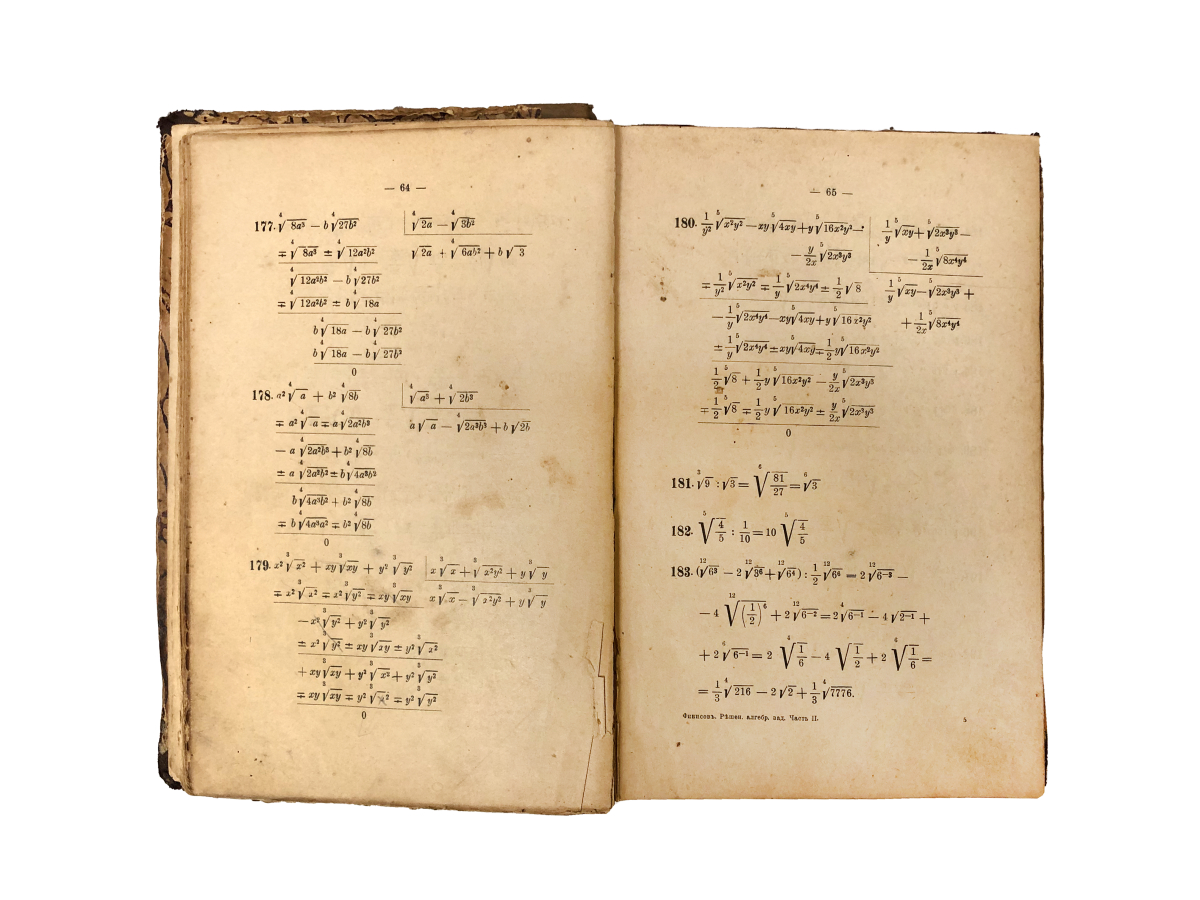 — 64 —
177. ⁴√8a³ − b ⁴√27b² | ⁴√2a − ⁴√3b²
∓ ⁴√8a³ ± ⁴√12a²b² √2a + ⁴√6ab² + b √3
⁴√12a²b² − b ⁴√27b²
∓ ⁴√12a²b² ± b ⁴√18a
b ⁴√18a − b ⁴√27b²
b ⁴√18a − b ⁴√27b²
0
178. a² ⁴√a + b² ⁴√8b | ⁴√a³ + ⁴√2b³
∓ a² ⁴√a ∓ a ⁴√2a²b³ a √a − ⁴√2a³b³ + b √2b
− a ⁴√2a²b³ + b² ⁴√8b
± a ⁴√2a²b² ± b ⁴√4a³b²
b ⁴√4a³b² + b² ⁴√8b
∓ b ⁴√4a³a² ∓ b² ⁴√8b
0
179. x² ³√x² + xy ³√xy + y² ³√y² | x ³√x + ³√x²y² + y ³√y
∓ x² ³√x² ∓ x² ³√y² ∓ xy ³√xy x ³√x − ³√x²y² + y ³√y
− x² ³√y² + y² ³√y²
± x² ³√y² ± xy ³√xy ± y² ³√x²
+ xy ³√xy + y² ³√x² + y² ³√y²
∓ xy ³√xy ∓ y² ³√x² ∓ y² ³√y²
0
— 65 —
180. 1/y² ⁵√x²y² − xy ⁵√4xy + y ⁵√16x²y² − | 1/y ⁵√xy + ⁵√2x³y³ −
− y/2x ⁵√2x³y³ − 1/2x ⁵√8x⁴y⁴
∓ 1/y² ⁵√x²y² ∓ 1/y ⁵√2x⁴y⁴ ± 1/2 ⁵√8 1/y ⁵√xy − ⁵√2x³y³ +
− 1/y ⁵√2x⁴y⁴ − xy ⁵√4xy + y ⁵√16x²y² + 1/2x ⁵√8x⁴y⁴
± 1/y ⁵√2x⁴y⁴ ± xy ⁵√4xy ∓ 1/2 y ⁵√16x²y²
1/2 ⁵√8 + 1/2 y ⁵√16x²y² − y/2x ⁵√2x³y³
∓ 1/2 ⁵√8 ∓ 1/2 y ⁵√16x²y² ± y/2x ⁵√2x³y³
0
181. ³√9 : √3 = ⁶√81/27 = ⁶√3
182. ⁵√4/5 : 1/10 = 10 ⁵√4/5
183. (¹²√6³ − 2 ¹²√3⁶ + ¹²√6⁴) : 1/2 ¹²√6⁶ = 2 ¹²√6⁻³ −
− 4 ¹²√(1/2)⁶ + 2 ¹²√6⁻² = 2 ⁴√6⁻¹ − 4 √2⁻¹ +
+ 2 ⁶√6⁻¹ = 2 ⁴√1/6 − 4 √1/2 + 2 ⁶√1/6 =
= 1/3 ⁴√216 − 2 √2 + 1/3 ⁴√7776.
Фиписовъ. Рѣшен. алгебр. зад. Часть II. 5